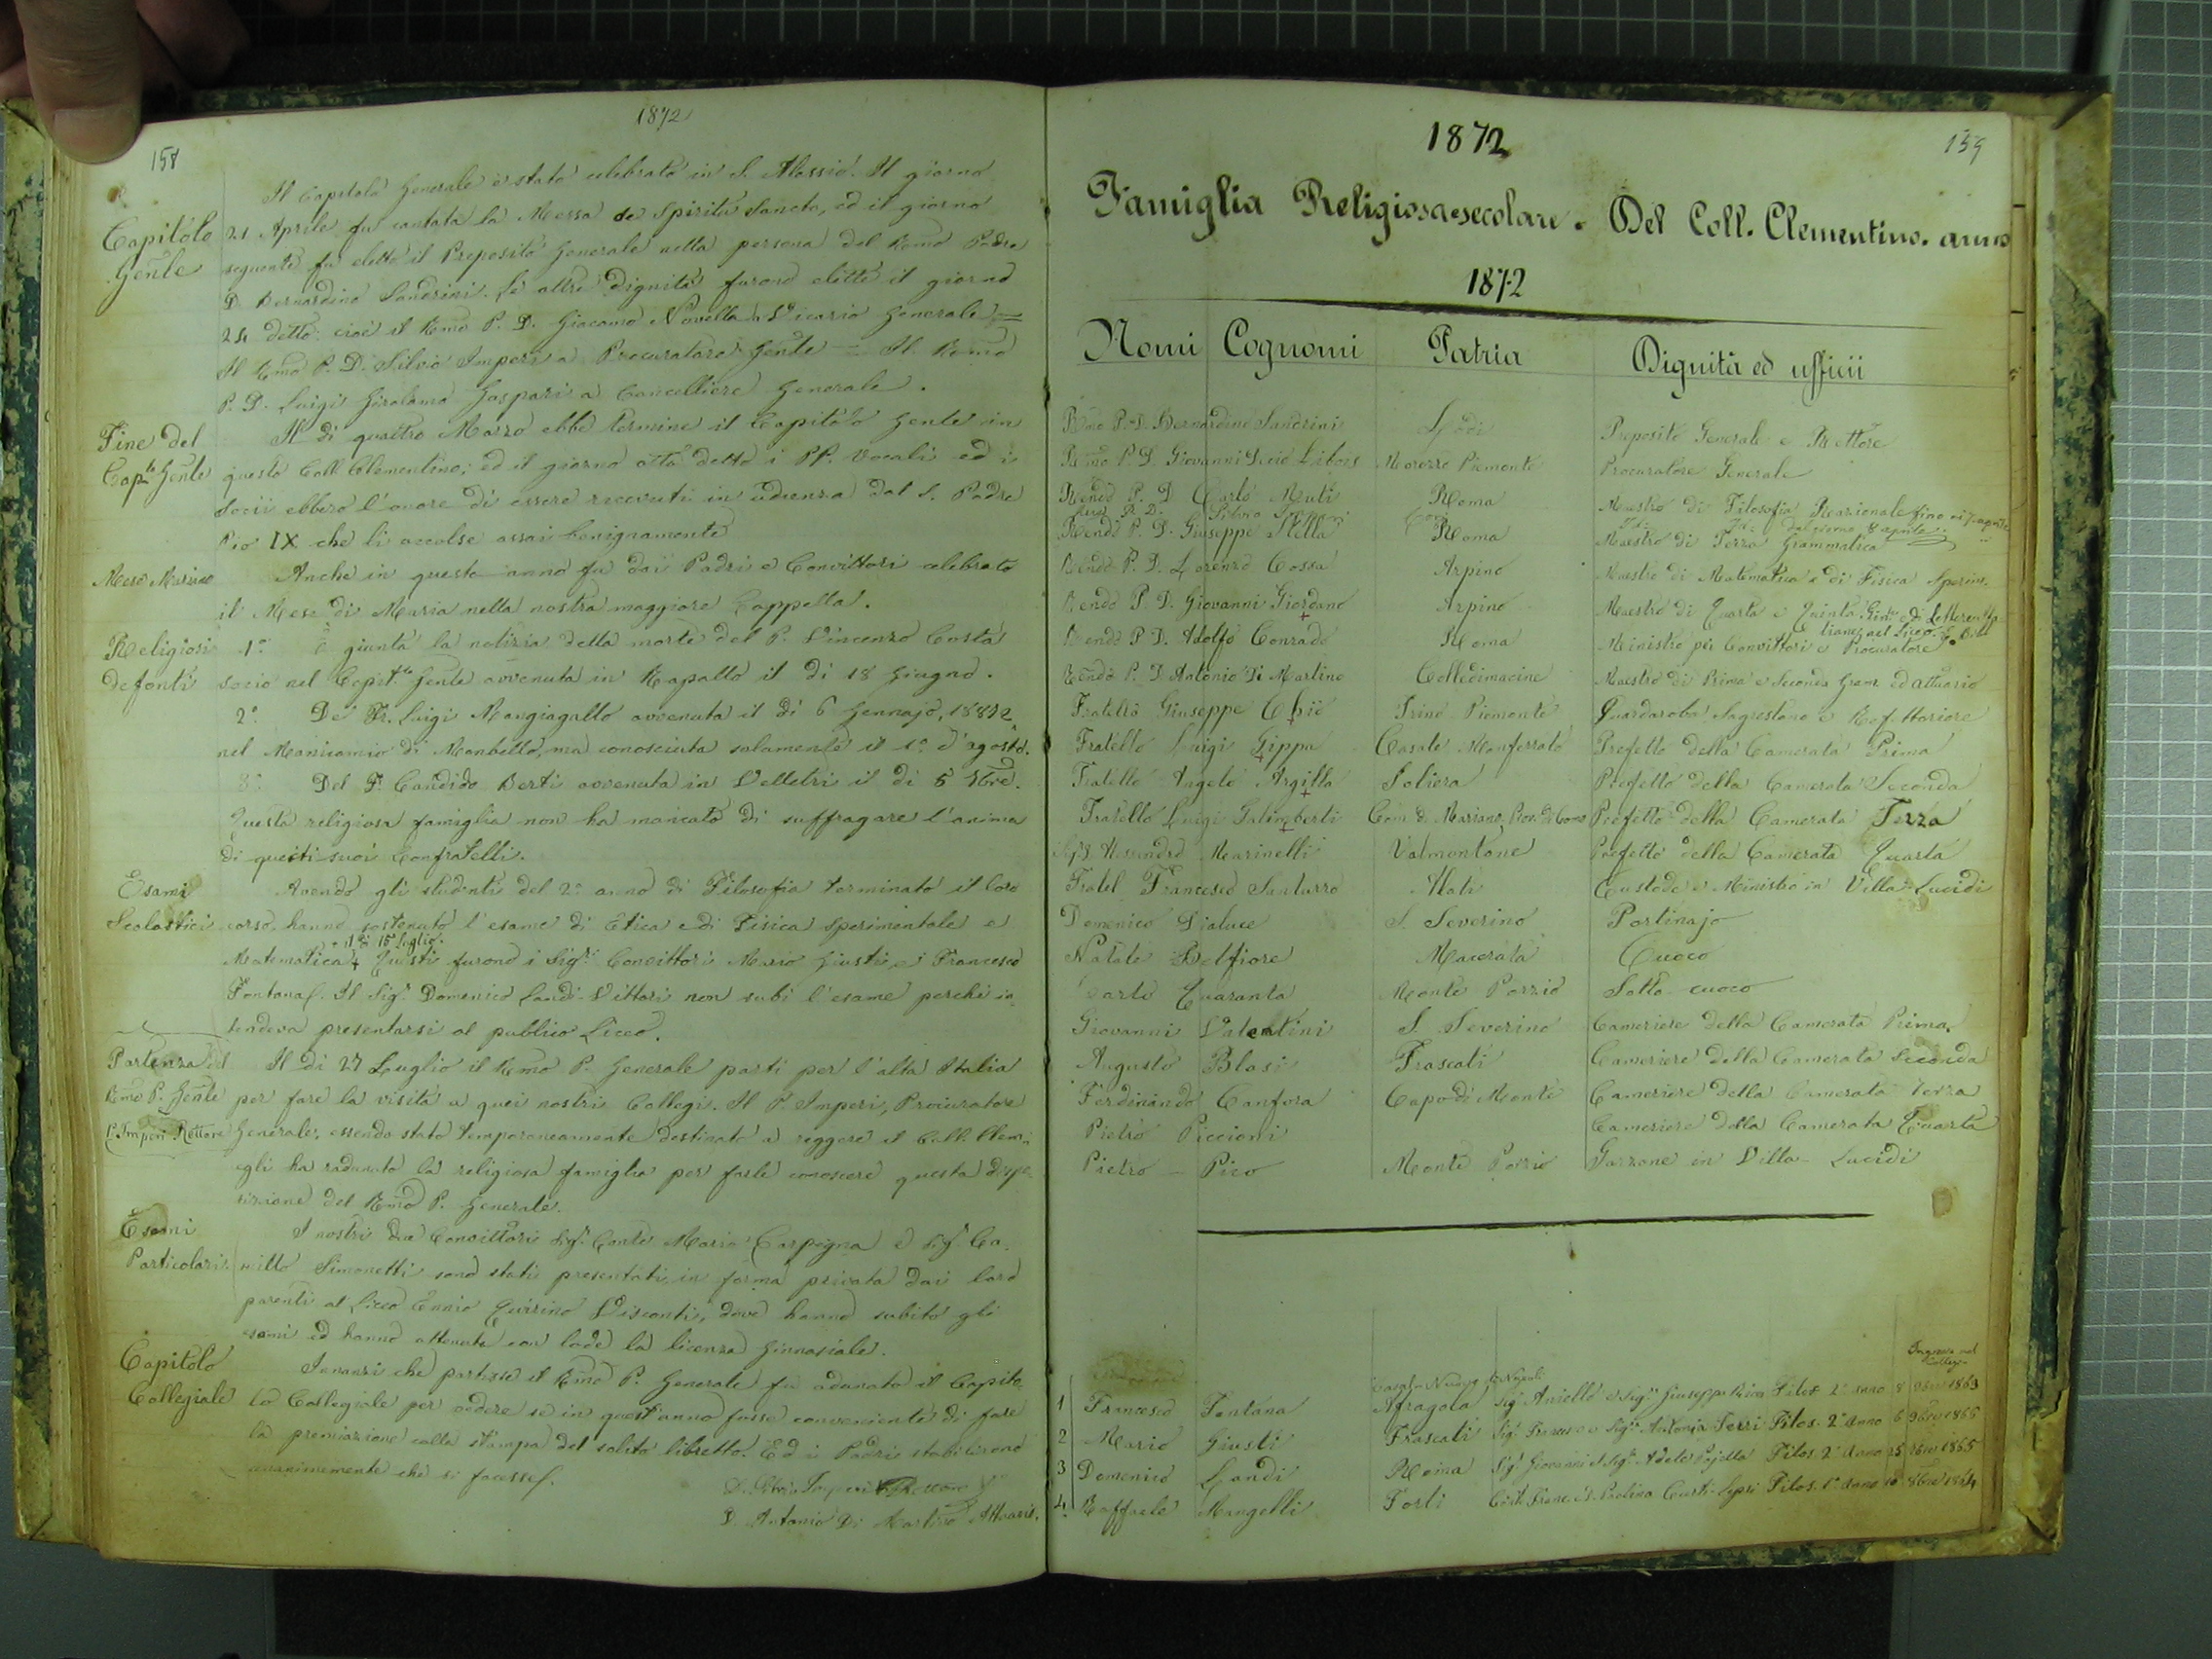 158
1872
Il Capitolo Generale è stato celebrato in S. Alessio. Il giorno
Capitolo Gen̄le
21 Aprile fu cantata la Messa de Spiritu Sancto, ed il giorno
seguente fu eletto il Preposito Generale nella persona del Rm̄o Padre
D. Bernardino Sandrini. Le altre dignità furono elette il giorno
24 detto: cioè il Rm̄o P. D. Giacomo Novella a Vicario Generale
Il Rm̄o P. D. Silvio Imperi a Procuratore Gen̄le — Il Rm̄o
P. D. Luigi Girolamo Gaspari a Cancelliere Generale.
Fine del Cap.lo Gen̄le
Il dì quattro Marzo ebbe termine il Capitolo Gen̄le in
questo Coll. Clementino; ed il giorno otto detto i PP. Vocali ed i
Socii ebbero l'onore di essere ricevuti in udienza dal S. Padre
Pio IX che li accolse assai benignamente
Mese Mariano
Anche in questo anno fu dai Padri e Convittori celebrato
il Mese di Maria nella nostra maggiore Cappella.
Religiosi defonti
1.° È giunta la notizia della morte del P. Vincenzo Costa
socio nel Capit.lo Gen̄le avvenuta in Rapallo il dì 18 Giugno.
2.° Del Fr. Luigi Mangiagallo avvenuta il dì 6 Gennajo, 1872,
nel Manicomio di Mombello, ma conosciuta solamente il 1.° d'agosto.
3.° Del F. Candido Berti avvenuta in Velletri il dì 5
Questa religiosa famiglia non ha mancato di suffragare l'anima
di questi suoi Confratelli.
Esami Scolastici
Avendo gli studenti del 2.° anno di Filosofia terminato il loro
corso, hanno sostenuto l'esame di Etica e di Fisica sperimentale e
+ il dì 15 luglio.
Matematica + Questi furono i Sig.ri Convittori Mario Giusti e Francesco
Fontana. Il Sig.r Domenico Landi-Vittori non subì l'esame perchè in-
tendeva presentarsi al publico Liceo.
Partenza del Rm̄o P. Gen̄le
P. Imperi Rettore
Il dì 27 Luglio il Rm̄o P. Generale partì per l'alta Italia
per fare la visita a quei nostri Collegi. Il P. Imperi, Procuratore
Generale, essendo stato temporaneamente destinato a reggere il Coll. Clem.
egli ha radunato la religiosa famiglia per farle conoscere questa dispo-
sizione del Rm̄o P. Generale.
Esami Particolari
I nostri due Convittori Sig.r Conte Mario Carpegna e Sig.r Ca-
millo Simonetti sono stati presentati in forma privata dai loro
parenti al Liceo Ennio Quirino Visconti, dove hanno subito gli
esami ed hanno ottenuta con lode la licenza Ginnasiale.
Capitolo Collegiale
Innanzi che partisse il Rm̄o P. Generale fu adunato il Capito-
lo Collegiale per vedere se in quest'anno fosse conveniente di fare
la premiazione colla stampa del solito libretto. Ed i Padri stabilirono
unanimemente che si facesse.
D. Silvio Imperi Rettore
D. Antonio Di Martino Attuario.
159
1872
Famiglia Religiosa e secolare. Del Coll. Clementino. anno
1872
Nomi Cognomi Patria Dignità ed ufficii
Rm̄o P. D. Bernardino Sandrini Lodi Preposito Generale e Rettore
Rm̄o P. D. Giovanni Decio Libois Morozzo Piemonte Procuratore Generale
Rendo P. D. Carlo Muti Roma Maestro di Filosofia Razionale fino ai 7 agosto
P. D. Silvio Imperi Id. Id. dal giorno 8 agosto
Rendo P. D. Giuseppe Stella Roma Maestro di Terza Grammatica
Rendo P. D. Lorenzo Cossa Arpino Maestro di Matematica e di Fisica Sperim.
Rendo P. D. Giovanni Giordano Arpino Maestro di Quarta e Quinta Gin.le e di Letteren Ita-
liane nel Liceo.
Rendo P. D. Adolfo Conrado Roma Ministro pei Convittori e Procuratore.
Rendo P. D. Antonio Di Martino Colledimacine Maestro di Prima e Seconda Gram. ed attuario
Fratello Giuseppe Trino Piemonte Guardaroba Sagrestano e Refettoriere
Fratello Luigi Gippa Casale Monferrato Prefetto della Camerata Prima
Fratello Angelo Argilla Soliera Prefetto della Camerata Seconda
Fratello Luigi Galimberti Com. di Mariano, Prov. di Como Prefetto della Camerata Terza
Sig.r Alessandro Marinelli Valmontone Prefetto della Camerata Quarta
Fratel Francesco Santurro Alati Custode e Ministro in Villa-Lucidi
Domenico Vialuce S. Severino Portinajo
Natale Belfiore Macerata Cuoco
Carlo Quaranta Monte Porzio Sotto-cuoco
Giovanni Valentini S. Severino Cameriere della Camerata Prima.
Augusto Blasi Frascati Cameriere della Camerata Seconda
Ferdinando Canfora Capo di Monte Cameriere della Camerata Terza
Pietro Piccioni Cameriere della Camerata Quarta
Pietro — Pico Monte Porzio Garzone in Villa-Lucidi
Ingresso nel Collegio
1 Francesco Fontana Afragola Sig.r Aniello e Sig.ra Giuseppa Filos. 2.° anno 8 1863
2 Mario Giusti Frascati Sig.r Francesco e Sig.ra Antonia Serri Filos. 2.° Anno 6 9bre 1865
3 Domenico Landi Roma Sig.r Giovanni e Sig.ra Adele Pajella Filos. 2.° Anno 25 1865
4. Raffaele Mangelli Forlì Filos. 1.° Anno 10 8bre 1864